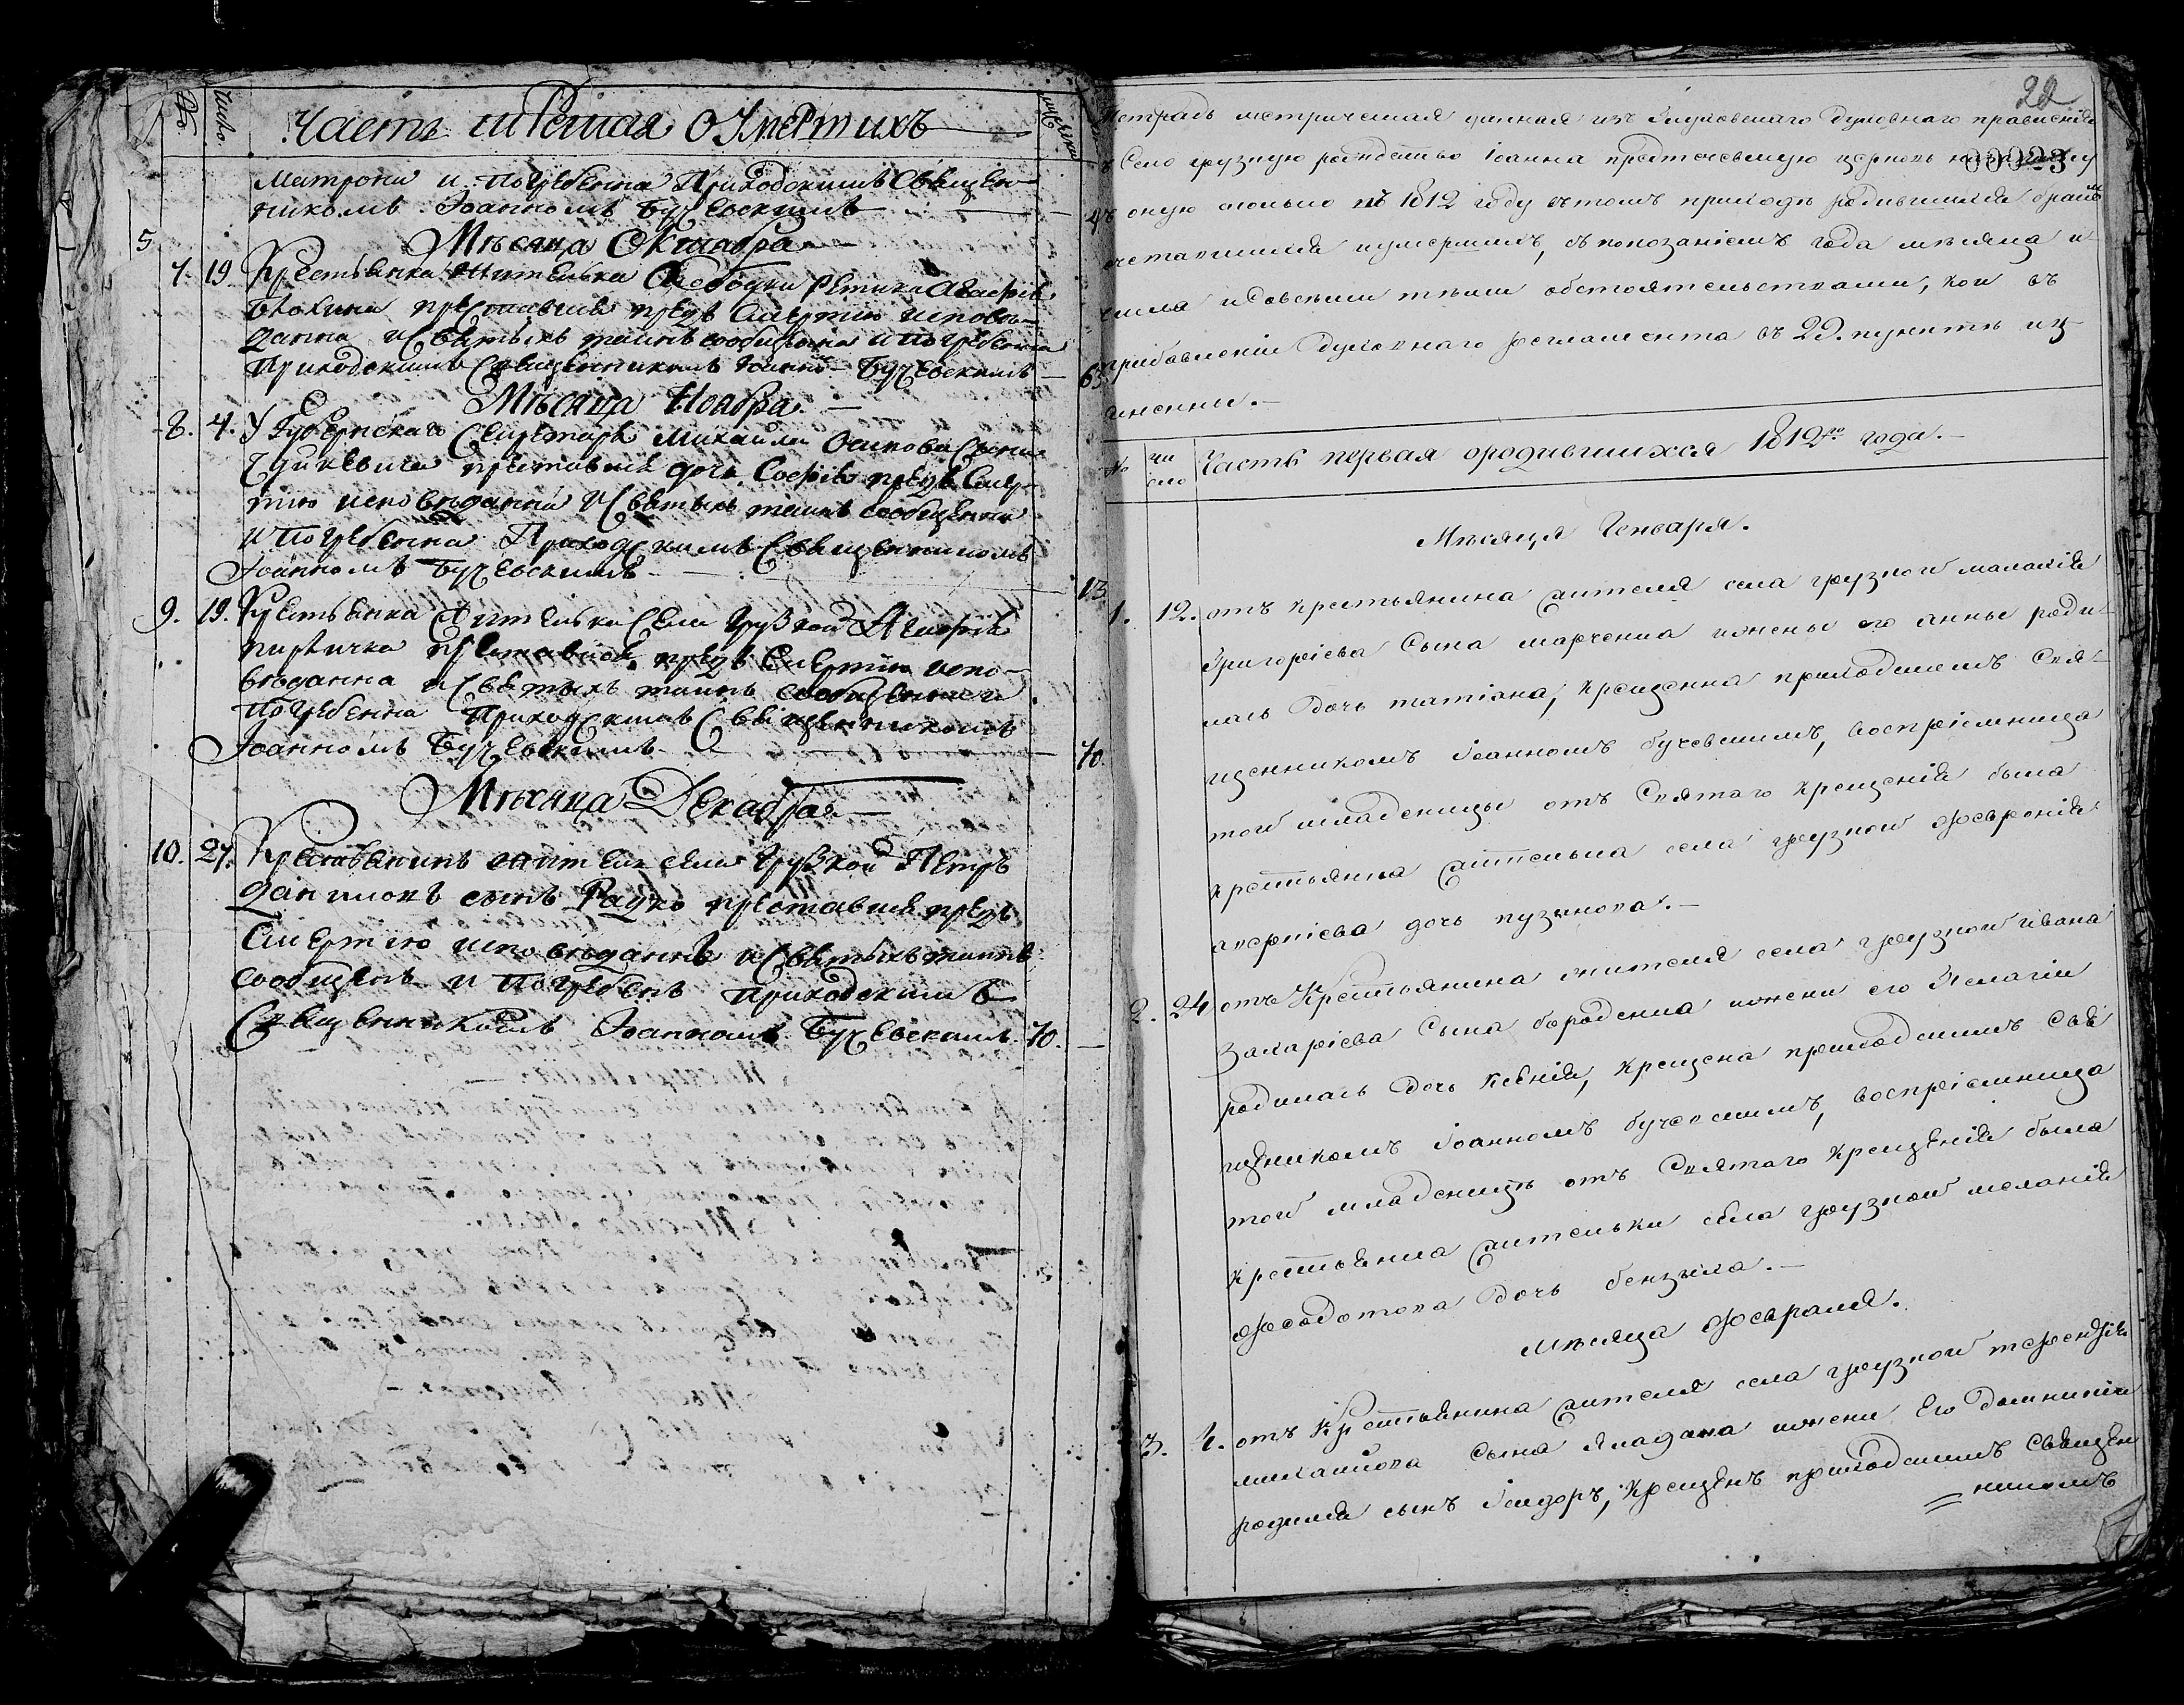 №
Число
Часть третая о умертихъ
Матрона и погребенна Приходскимъ Священ-
никомъ Иоанномъ Бучевскимъ
5
Месяца Октября
7. 19 Крестьянка жителька Слободки
преставися предъ смертию исповѣ-
данна и святыхъ таинъ сообщена и погребенна
Приходскимъ Священникомъ Иоанномъ Бучевскимъ
Мѣсяца Ноября
8. 4. У Губернскаго Секретаря Михайла Осипова сына
преставися дочь Софія предъ смер-
тию исповѣданна и святыхъ таинъ сообщенна
и погребенна Приходскимъ Священникомъ
Иоанномъ Бучевскимъ
13
9. 19. Крестьянка жителька села Грузкой Агафія
преставися предъ смертию испо-
вѣданна и святыхъ таинъ сообщенна и
погребенна Приходскимъ Священникомъ
Иоанномъ Бучевскимъ
70.
Мѣсяца Декабря
10. 27. Крестьянинъ житель села Грузкой Петръ
Данииловъ сынъ Рацко преставися предъ
смертию исповѣданнъ и святыхъ таинъ
сообщенъ и погребенъ приходскимъ
Священникомъ Иоанномъ Бучевскимъ 70.
22
00023
Тетрадь метрическая данная изъ Глуховскаго духовнаго правленія
въ село грузкую рождество Іоанна предтечевскую церковь на записку
въ оную сколько въ 1812 году въ томъ приходѣ родившихся бракомъ
сочетавшихся и умершихъ, съ показаніемъ года мѣсяца и
числа и со всѣми тѣми обстоятельствами, кои въ
прибавленіи духовнаго регламента въ 29. пунктѣ из-
ъясненны.
№ чи сло Часть первая о родившихся 1812го года.
Мѣсяца Генваря.
1. 12. отъ крестьянина жителя села грузкой малахія
Григоріева сына марченка и жены его анны роди-
лась дочь татіана, крещенна приходскимъ Свя-
щенникомъ Іоанномъ бучевскимъ, воспріемница
той младеницы отъ Святаго крещенія была
крестьянка жителька села грузкой февронія
дочь пузикова.
2. 24 отъ Крестьянина жителя села грузкой ивана
Захаріева Сына бороденка и жены его Пелагіи
родилась дочь Ксенія, крещена приходскимъ Свя
щеникомъ Іоанномъ бучевскимъ, воспріемница
той младеницы отъ Святаго крещенія была
крестьянка жителька села грузкой меланія
федотова дочь
Мѣсяца февраля.
3. 4. отъ Крестьянина жителя села грузкой
михайлова сына и жены его домникіи
родился сынъ Ісидоръ, крещенъ приходскимъ Священ
никомъ